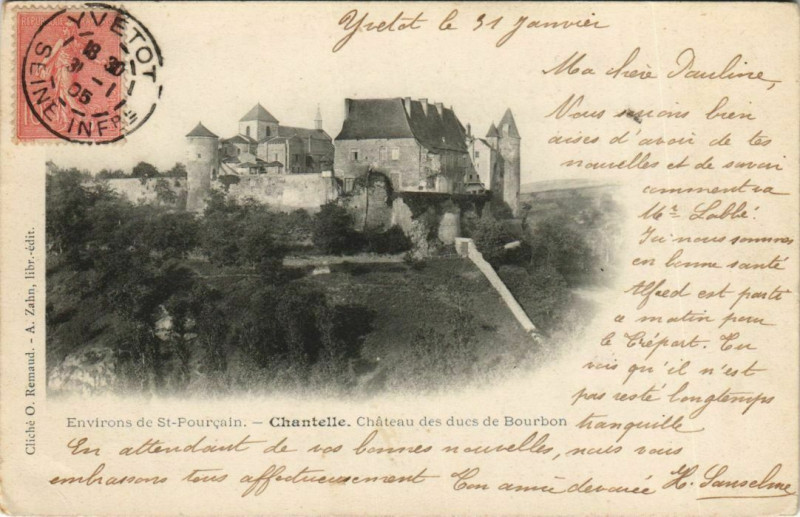 Yvetot le 31 Janvier
YVETOT
18 30
31 - 1
05
SEINE INFRE
Ma chère Pauline,
Nous serions bien
aises d'avoir de tes
nouvelles et de savoir
comment va
Mr Labbé.
Ici nous sommes
en bonne santé
Alfred est parti
ce matin pour
le Tréport. Tu
vois qu'il n'est
pas resté longtemps
tranquille
Cliché O. Remaud. - A. Zahn, libr.-édit.
Environs de St-Pourçain. - Chantelle. Château des ducs de Bourbon
En attendant de vos bonnes nouvelles, nous vous
embrassons tous affectueusement Ton amie dévouée H. Sanselme